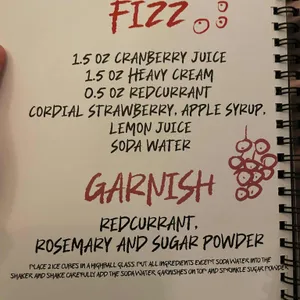 FIZZ
1.5 OZ CRANBERRY JUICE
1.5 OZ HEAVY CREAM
0.5 OZ REDCURRANT
CORDIAL STRAWBERRY, APPLE SYRUP,
LEMON JUICE
SODA WATER
GARNISH
REDCURRANT,
ROSEMARY AND SUGAR POWDER
PLACE 2 ICE CUBES IN A HIGHBALL GLASS. PUT ALL INGREDIENTS EXCEPT SODA WATER INTO THE
SHAKER AND SHAKE CAREFULLY. ADD THE SODA WATER, GARNISHES ON TOP AND SPRINKLE SUGAR POWDER